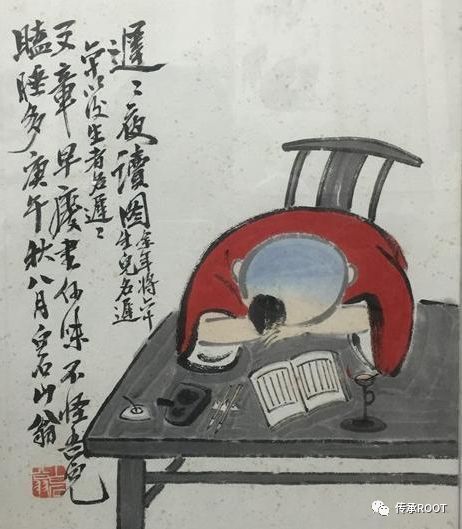 遲〻夜讀圖
余年將六十
生兒名遲
余以後生者名遲〻
文章早廢書何味不怪吾兒
瞌睡多庚午秋八月白石山翁
传承ROOT